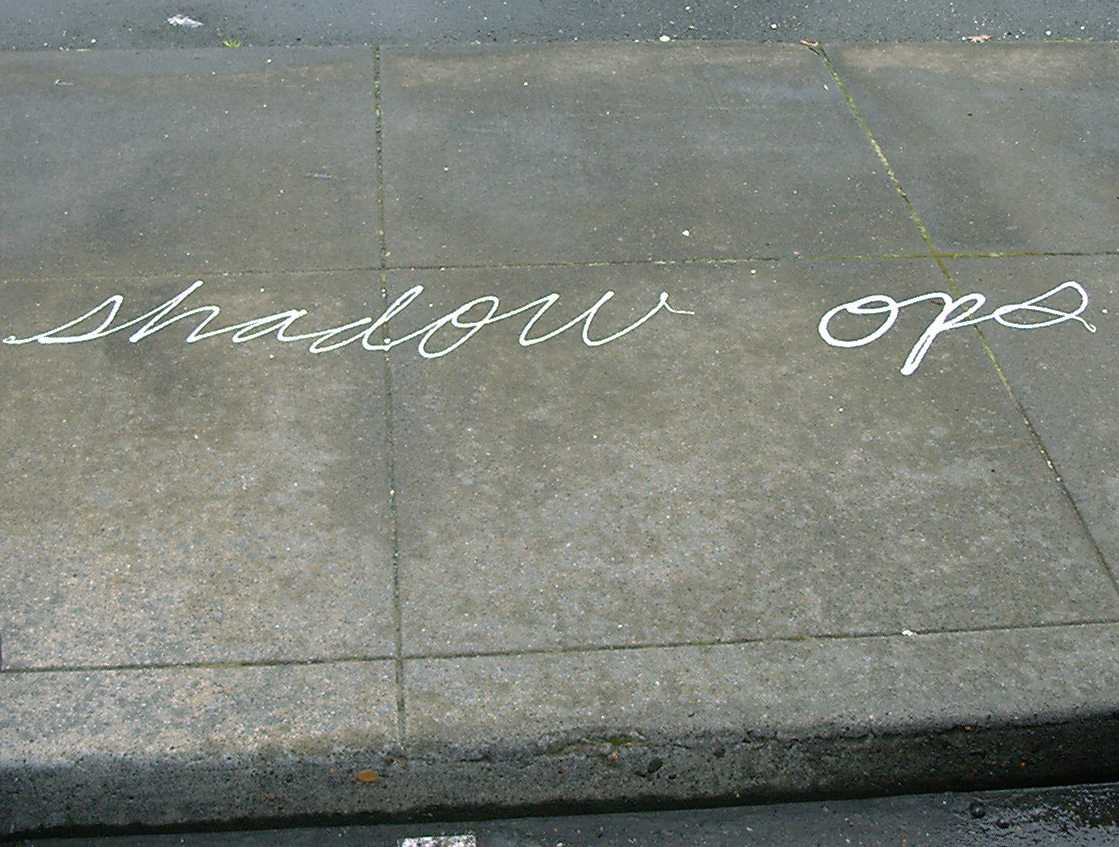 shadow ops